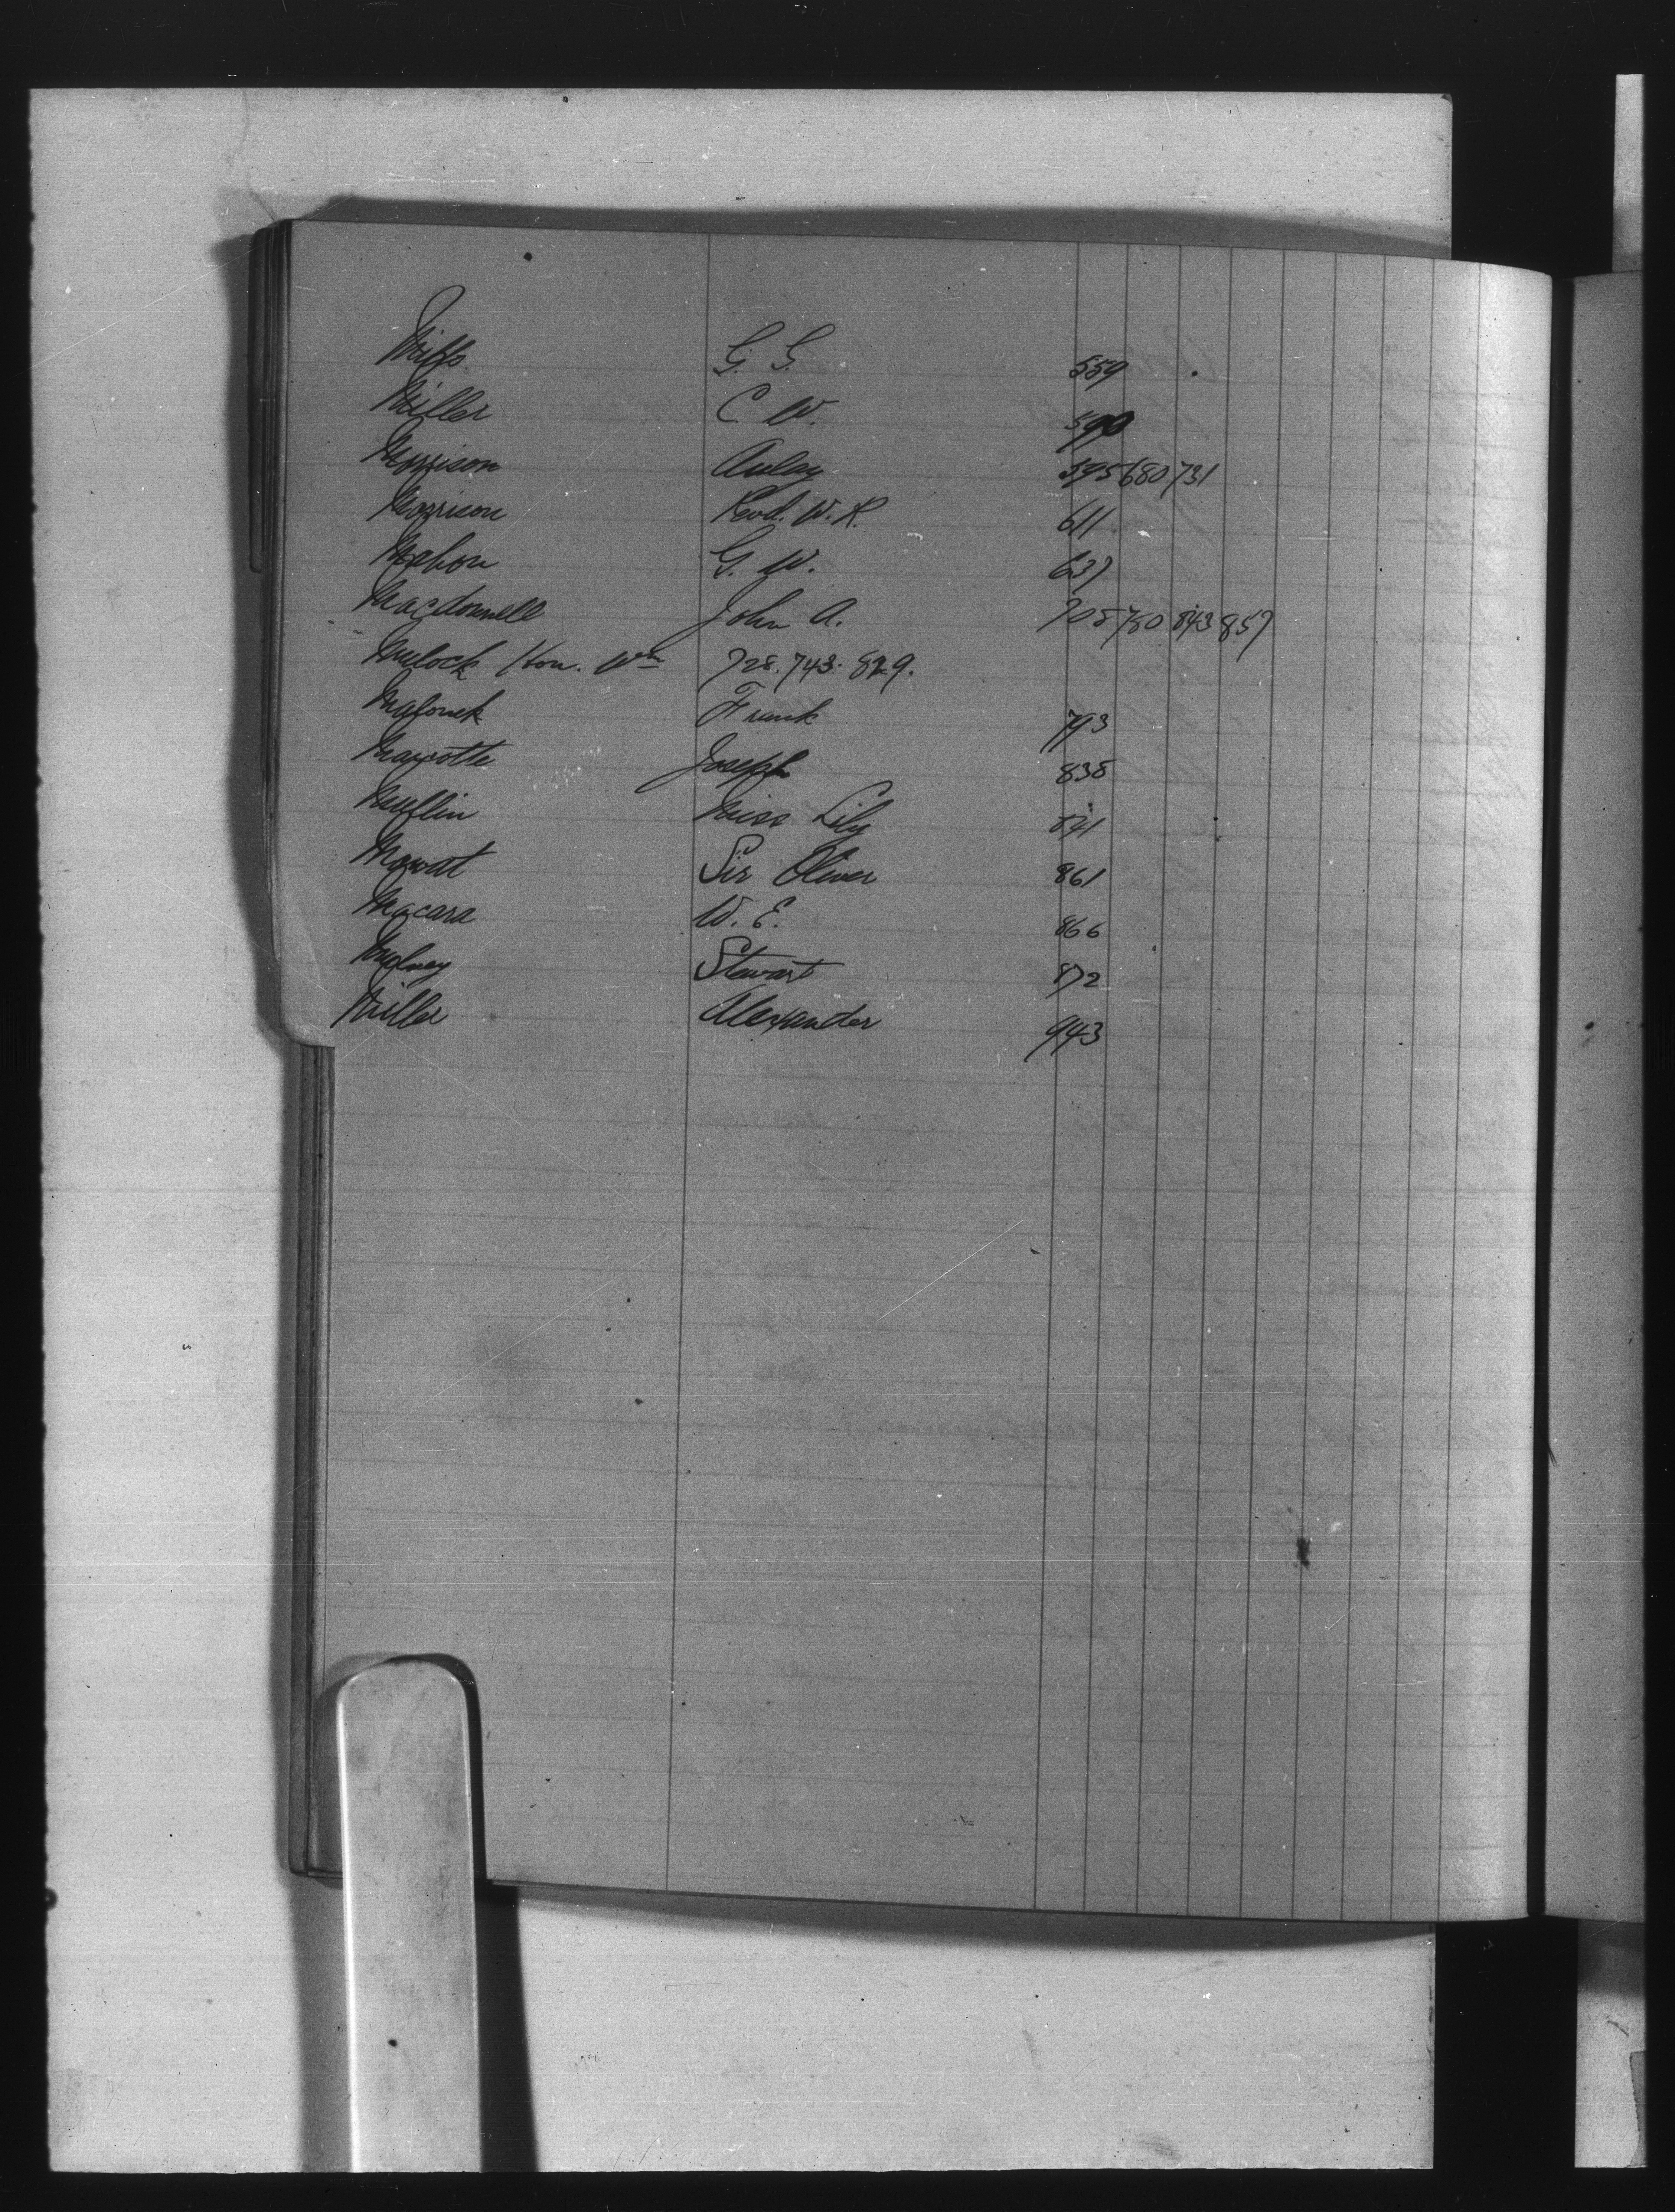 Mills G. G. 559
Miller C W. 590
Morrison Aulay 595 680 731
Morrison Revd. W. R. 611
Mahon G. W. 637
Macdonnell John A. 705 780 843 857
Mulock Hon. Wm 728. 743. 829.
Frank 793
Marcotte Joseph 838
Mufflin Miss Lily 841
Mowat Sir Oliver 861
Macara W. E. 866
Mulvey Stewart 872
Miller Alexander 943